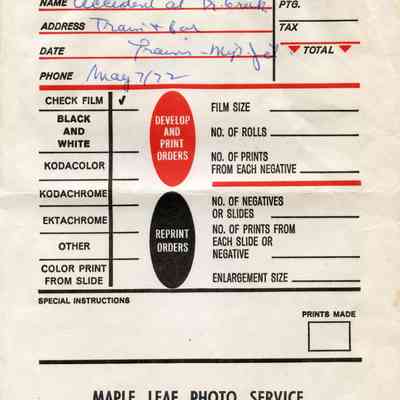 NAME Accident at D. Creek PTG.
ADDRESS Train & Car TAX
DATE Travis - Myr. Jct TOTAL
PHONE May 7/72
CHECK FILM ✓
BLACK AND WHITE
KODACOLOR
KODACHROME
EKTACHROME
OTHER
COLOR PRINT FROM SLIDE
DEVELOP AND PRINT ORDERS
FILM SIZE
NO. OF ROLLS
NO. OF PRINTS
FROM EACH NEGATIVE
REPRINT ORDERS
NO. OF NEGATIVES
OR SLIDES
NO. OF PRINTS FROM
EACH SLIDE OR
NEGATIVE
ENLARGEMENT SIZE
SPECIAL INSTRUCTIONS
PRINTS MADE
MAPLE LEAF PHOTO SERVICE